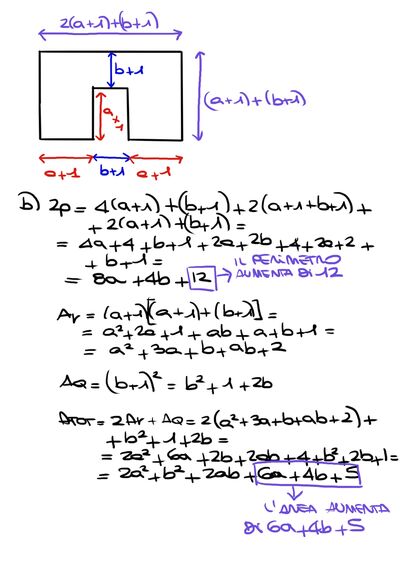 2(a+1)+(b+1)
b+1
a+1
(a+1)+(b+1)
a+1 b+1 a+1
b) 2p = 4(a+1)+(b+1)+2(a+1+b+1)+
+2(a+1)+(b+1)=
= 4a+4+b+1+2a+2b+4+2a+2+
+b+1=
= 8a+4b+12 → IL PERIMETRO
AUMENTA DI 12
Ar = (a+1)[(a+1)+(b+1)]=
= a²+2a+1+ab+a+b+1=
= a²+3a+b+ab+2
AQ = (b+1)² = b²+1+2b
ATOT = 2Ar+AQ = 2(a²+3a+b+ab+2)+
+b²+1+2b=
= 2a²+6a+2b+2ab+4+b²+2b+1=
= 2a²+b²+2ab+6a+4b+5
L'AREA AUMENTA
DI 6a+4b+5